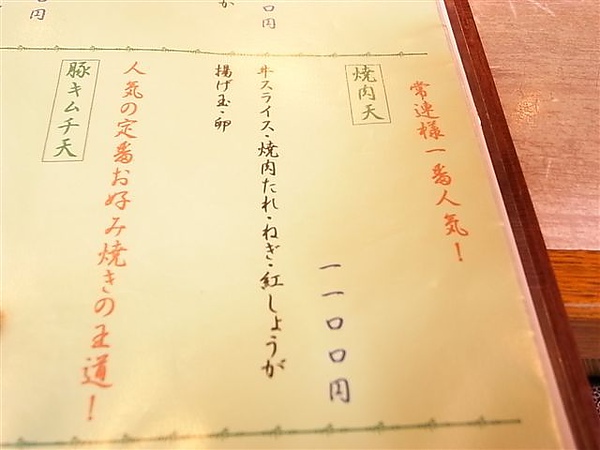 常連様一番人気！
焼肉天
一一〇〇円
牛スライス・焼肉たれ・ねぎ・紅しょうが
揚げ玉・卵
人気の定番お好み焼きの王道！
豚キムチ天
〇円
が
円